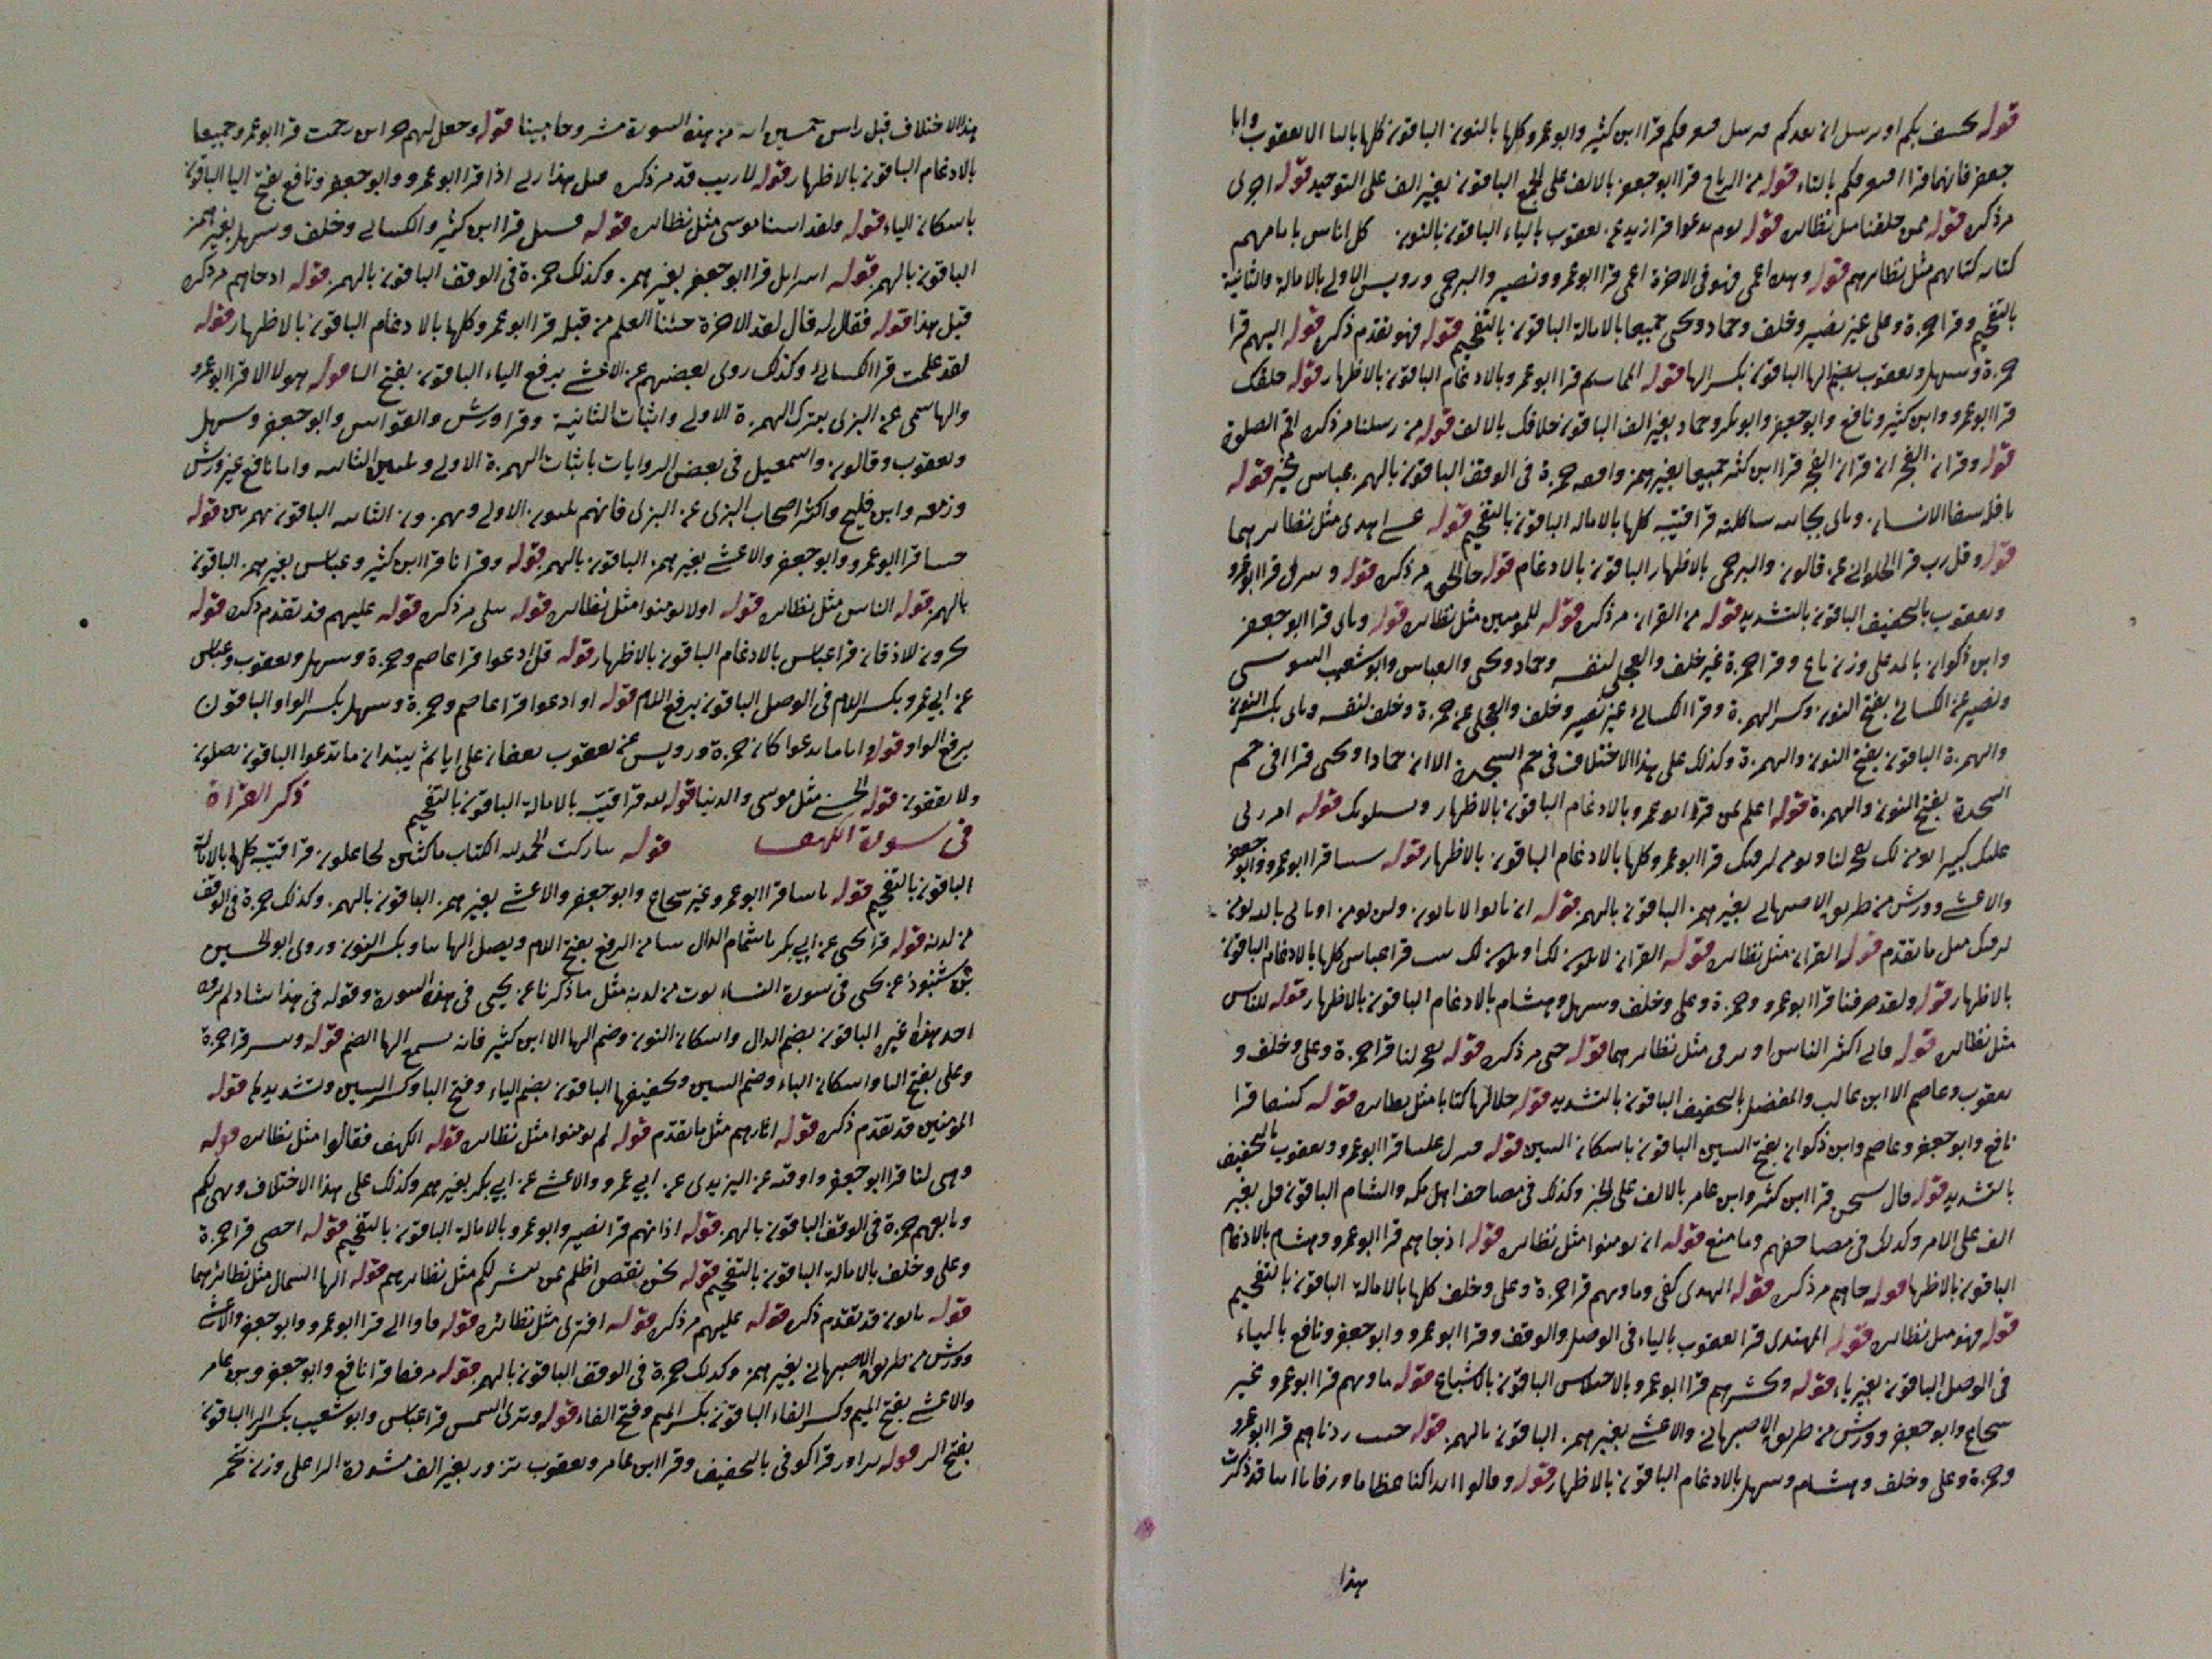 قوله يخسف بكم او يرسل ان يعيدكم فيرسل فيغرقكم قرا ابن كثير وابو عمرو كلها بالنون الباقون كلها بالياء الا يعقوب وابا
جعفر فانهما قراا فيغرقكم بالتاء قوله من الرياح قرا ابو جعفر بالالف على الجمع الباقون بغير الف على التوحيد قوله اخرى
مر ذكره قوله ممن خلقنا مثل نظائره قوله يوم ندعوا قرا زيد عن يعقوب بالياء الباقون بالنون كل اناس بامامهم
كتابه كتابهم مثل نظائرهم قوله وهذه اعمى فهو في الاخرة اعمى قرا ابو عمرو ونصير والبرجمي ورويس الاولى بالامالة والثانية
بالتفخيم وقرا حمزة وعلي غير نصير وخلف وحماد ويحيى جميعا بالامالة الباقون بالتفخيم قوله فهو تقدم ذكره قوله اليهم قرا
حمزة وسهل ويعقوب بضم الها الباقون بكسر الها قوله الممات ثم قرا ابو عمرو بالادغام الباقون بالاظهار قوله خلفك
قرا ابو عمرو وابن كثير ونافع وابو جعفر وابو بكر وحماد بغير الف الباقون خلافك بالالف قوله من رسلنا مر ذكره اقم الصلوة
قوله وقران الفجر ان قران الفجر قرا ابن كثير جميعا بغير همز وافقه حمزة في الوقف الباقون بالهمز عباس مخير قوله
شاكلته قرا قتيبه كلها بالاماله الباقون بالتفخيم قوله عسى اهدى مثل نظائرهما
قوله وقل رب قرا الحلواني عن قالون والبرجمي بالاظهار الباقون بالادغام قوله جا الحق مر ذكره قوله وننزل قرا ابو عمرو
ويعقوب بالتخفيف الباقون بالتشديد قوله من القران مر ذكره قوله للمومنين مثل نظائره قوله وناى قرا ابو جعفر
وابن ذكوان بالمد على وزن باع وقرا حمزة غير خلف والعجلي لنفسه وحماد ويحيى والعباس وابو شعيب السوسي
ونصير عن الكسائي بفتح النون وكسر الهمزة وقرا الكسائي غير نصير وخلف والعجلي عن حمزة وخلف لنفسه وناى بكسر النون
والهمزة الباقون بفتح النون والهمزة وكذلك على هذا الاختلاف في حم السجدة الا ان حمادا ويحيى قراا في حم
السجدة بفتح النون والهمزة قوله اعلم بمن قرا ابو عمرو بالادغام الباقون بالاظهار ويسلونك قوله امر ربي
عليك كبيرا نومن لك تفجر لنا ونومن لرقيك قرا ابو عمرو كلها بالادغام الباقون بالاظهار قوله شينا قرا ابو عمرو وابو جعفر
والاعشى وورش من طريق الاصبهاني بغير همز الباقون بالهمز قوله ان ياتوا لا ياتون ولن نومن او تاتي بالله نومن
لرقيك مثل ما تقدم قوله القران مثل نظائره قوله القران لا ياتون قرا عباس كلها بالادغام الباقون
بالاظهار قوله ولقد صرفنا قرا ابو عمرو وحمزة وعلي وخلف وسهل وهشام بالادغام الباقون بالاظهار قوله للناس
مثل نظائره قوله فابى اكثر الناس او ترقى مثل نظائرهما قوله حتى مر ذكره قوله تفجر لنا قرا حمزة وعلي وخلف و
يعقوب وعاصم الا ابن غالب والمفضل بالتخفيف الباقون بالتشديد قوله خلالها كتابا مثل نظائره قوله كسفا قرا
نافع وابو جعفر وعاصم وابن ذكوان بفتح السين الباقون باسكان السين قوله تنزل علينا قرا ابو عمرو ويعقوب بالتخفيف
بالتشديد قوله قال سبحن قرا ابن كثير وابن عامر بالالف على الخبر وكذلك في مصاحف اهل مكه والشام الباقون قل بغير
الف على الامر وكذلك في مصاحفهم وما منع قوله ان يومنوا مثل نظائره قوله اذ جاهم قرا ابو عمرو وهشام بالادغام
الباقون بالاظها قوله جاهم مر ذكره قوله الهدى كفى وماويهم قرا حمزة وعلي وخلف كلها بالامالة الباقون بالتفخيم
قوله فهو مثل نظائره قوله المهتدى قرا يعقوب بالياء في الوصل والوقف وقرا ابو عمرو وابو جعفر ونافع بالياء
في الوصل الباقون بغير ياء قوله ونحشرهم قرا ابو عمرو بالاختلاس الباقون بالاشباع قوله ماويهم قرا ابو عمرو غير
شجاع وابو جعفر وورش من طريق الاصبهاني والاعشى بغير همز الباقون بالهمز قوله خبت زدناهم قرا ابو عمرو
وحمزة وعلي وخلف وهشام وسهل بالادغام الباقون بالاظهار قوله وقالوا اءذا كنا عظاما ورفاتا اءنا قد ذكرت
هذا
هذا الاختلاف قبل راس خمسين اية من هذه السورة مشروحا مبينا قوله وجعل لهم خزاين رحمت قرا ابو عمرو جميعا
بالادغام الباقون بالاظهار قوله لا ريب قد مر ذكره قبل هذا ربي اذا قرا ابو عمرو وابو جعفر ونافع بفتح اليا الباقون
باسكان الياء قوله ولقد اتينا موسى مثل نظائره قوله فسل قرا ابن كثير والكسائي وخلف وسهل بغير همز
الباقون بالهمز قوله اسرايل قرا ابو جعفر بغير همز وكذلك حمزة في الوقف الباقون بالهمز قوله اذ جاهم مر ذكره
قبل هذا قوله فقال له قال لقد الاخرة جئنا العلم من قبله قرا ابو عمرو كلها بالادغام الباقون بالاظهار قوله
لقد علمت قرا الكسائي وكذلك روى بعضهم عن الاعشى برفع التاء الباقون بفتح التا قوله هولا الا قرا ابو عمرو
والهاسمي عن البزي بترك الهمزة الاولى واثبات الثانية وقرا ورش والقواس وابو جعفر وسهل
ويعقوب وقالون واسمعيل في بعض الروايات باثبات الهمزة الاولى وتليين الثانيه واما نافع غير ورش
وزمعه وابن فليح واكثر اصحاب البزي عن البزي فانهم يلينون الاولى ويهمزون الثانيه الباقون بهمزتين قوله
جينا قرا ابو عمرو وابو جعفر والاعشى بغير همز الباقون بالهمز قوله وقرانا قرا ابن كثير وعباس بغير همز الباقون
بالهمز قوله الناس مثل نظائره قوله اولا تومنوا مثل نظائره قوله يتلى مر ذكره قوله عليهم قد تقدم ذكره قوله
يخرون للاذقان قرا عباس بالادغام الباقون بالاظهار قوله قل ادعوا قرا عاصم وحمزة وسهل ويعقوب وعباس
عن ابي عمرو بكسر اللام في الوصل الباقون برفع اللام قوله او ادعوا قرا عاصم وحمزة وسهل بكسر الواو الباقون
برفع الواو قوله ايا ما تدعوا كان حمزة ورويس عن يعقوب يقفان على ايا ثم يبتدان ما تدعوا الباقون يصلون
ولا يقفون قوله الحسنى مثل موسى والدنيا قوله لله قرا قتيبة بالامالة الباقون بالتفخيم ذكر القراة
في سورة الكهف قوله تباركت الحمد لله الكتاب ماكثين لجاعلون قرا قتيبه كلها بالامالة
الباقون بالتفخيم قوله باسا قرا ابو عمرو غير شجاع وابو جعفر والاعشى بغير همز الباقون بالهمز وكذلك حمزة في الوقف
من لدنه قوله قرا يحيى عن ابي بكر باشمام الدال شيا من الرفع بفتح اللام ويصل الها بيا وبكسر النون وروى ابو الحسين
بن شنبوذ عن يحيى في سورة النساء يوت من لدنه مثل ما ذكرنا عن يحيى في هذه السورة وقوله في هذا شاذ لم يروه
احد غيره الباقون بضم الدال واسكان النون وضم الها الا ابن كثير فانه يشبع الها الضم قوله ويبشر قرا حمزة
وعلي بفتح اليا واسكان الباء وضم الشين وتخفيفها الباقون بضم الياء وفتح البا وكسر الشين وتشديدها قوله
المومنين قد تقدم ذكره قوله اثارهم مثل ما تقدم قوله لم يومنوا مثل نظائره قوله الكهف فقالوا مثل نظائره قوله
وهيى لنا قرا ابو جعفر واوقيه عن اليزيدي عن ابي عمرو والاعشى عن ابي بكر بغير همز وكذلك على هذا الاختلاف ويهيى لكم
وتابعهم حمزة في الوقف الباقون بالهمز قوله اذانهم قرا نصير وابو عمرو بالامالة الباقون بالتفخيم قوله احصى قرا حمزة
وعلي وخلف بالامالة الباقون بالتفخيم قوله نحن نقص اظلم ممن ينشر لكم مثل نظائرهم قوله الها الشمال مثل نظائرهما
قوله ياتون قد تقدم ذكره قوله عليهم مر ذكره قوله افترى مثل نظائره قوله فاووا الى قرا ابو عمرو وابو جعفر والاعشى
وورش من طريق الاصبهاني بغير همز وكذلك حمزة في الوقف الباقون بالهمز قوله مرفقا قرا نافع وابو جعفر وبن عامر
والاعشى بفتح الميم وكسر الفاء الباقون بكسر الميم وفتح الفاء قوله وترى الشمس قرا عباس وابو شعيب بكسر الرا الباقون
بفتح الر قوله تزاور قرا كوفي بالتخفيف وقرا ابن عامر ويعقوب تزور بغير الف مشددة الرا على وزن تحمر